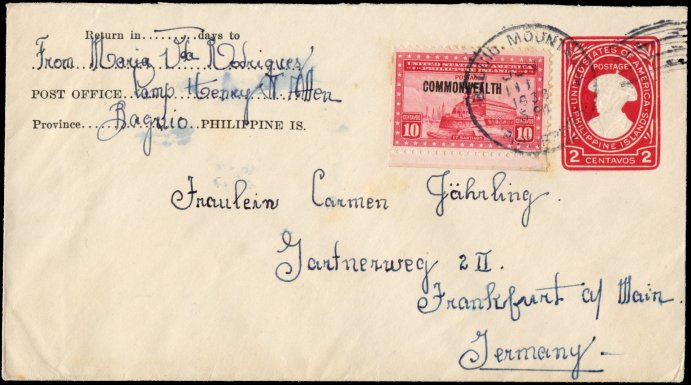 Return in........days to
From Maria Vda Rodriguez
POST OFFICE Camp Henry T Allen
Province Baguio PHILIPPINE IS.
UNITED STATES OF AMERICA
PHILIPPINE ISLANDS
COMMONWEALTH
CENTAVOS CENTAVOS
10 10
MOUNTAIN
UNITED STATES OF AMERICA
POSTAGE
PHILIPPINE ISLANDS
2 CENTAVOS 2
Fraulein Carmen Jährling.
Gartnerweg 2 II.
Frankfurt a/ Main.
Germany —